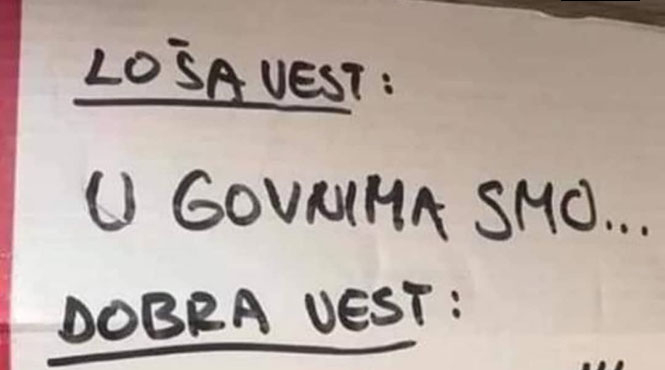 LOŠA VEST:
U GOVNIMA SMO...
DOBRA VEST: